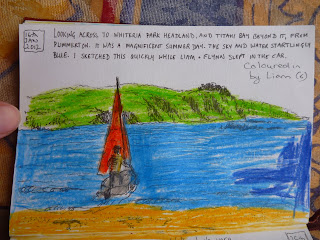 16th
JAN
2012
LOOKING ACROSS TO WHITERIA PARK HEADLAND, AND TITAHI BAY BEYOND IT, FROM
PLIMMERTON. IT WAS A MAGNIFICENT SUMMER DAY. THE SKY AND WATER STARTLINGLY
BLUE. I SKETCHED THIS QUICKLY WHILE LIAM + FLYNN SLEPT IN THE CAR.
Coloured in
by Liam (6)